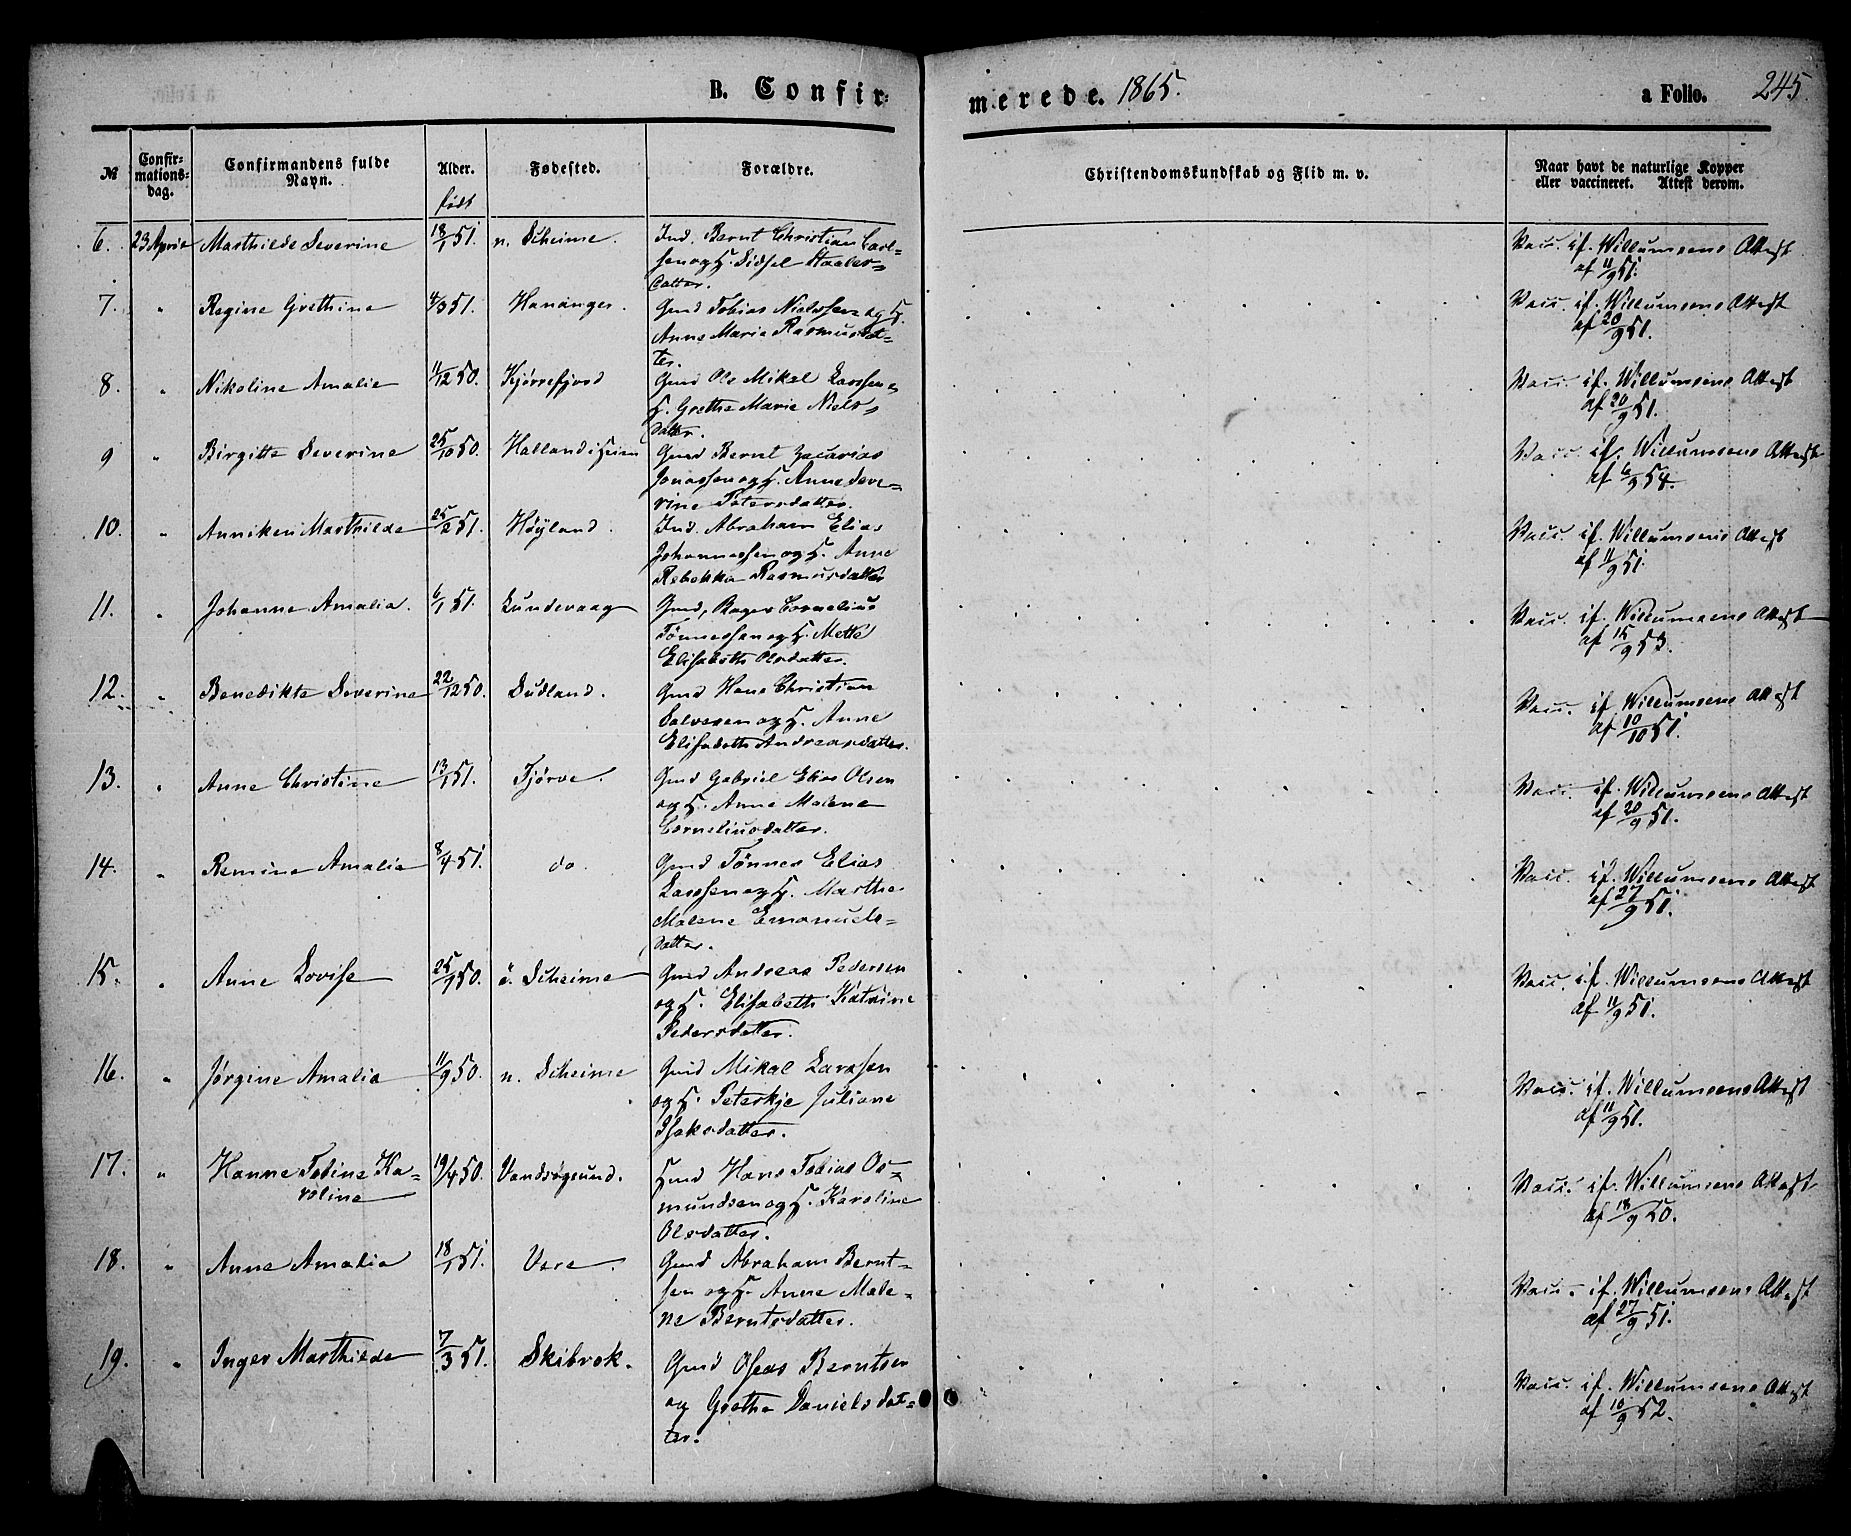 B. Confir-
merede. 1865.
a Folio. 245.
№
Confir-
mations-
dag.
Confirmandens fulde
Navn.
Alder.
født
Fødested.
Forældre.
Christendomskundskab og Flid m. v.
Naar havt de naturlige Kopper
eller vaccineret. Attest derom.
6. 23 April Marthilde Severine 18/1 51. n. Scheime. Ind. Bernt Christian Carl-
sen og H. Sidsel Staales-
datter.
Vacc. if. Willumsens Attest
af 11/9 51.
7. " Regine Grethine 4/3 51. Hananger. Gmd Tobias Nielssen og H.
Anne Marie Rasmusdat-
ter.
Vacc. if. Willumsens Attest
af 20/9 51.
8. " Nikoline Amalie 11/12 50. Kjørrefjord Gmd Ole Mikel Larssen
H. Grethe Marie Niels-
datter.
Vacc. if. Willumsens Attest
af 20/9 51.
9 " Birgitte Severine 25/10 50. Hallandsheim Gmd Bernt Zacarias
Jonassen og H. Anne Seve-
rine Petersdatter.
Vacc. if. Willumsens Attest
af 6/9 54.
10. " Anniken Marthilde 25/2 51. Høyland. Ind. Abraham Elias
Johannessen og H. Anne
Rebekka Rasmusdatter
Vacc. if. Willumsens Attest
af 11/9 51.
11. " Johanne Amalia. 6/1 51. Lundevaag Gmd, Roger Cornelius
Tønnessen og H. Mette
Elisabeth Olsdatter.
Vacc. if. Willumsens Attest
af 15/9 53.
12. " Benedikte Severine 22/12 50. Sudland. Gmd Hans Christian
Salvesen og H. Anne
Elisabeth Andreasdatter.
Vacc. if. Willumsens Attest
af 10/10 51.
13. " Anne Christine 13/1 51. Tjørve. Gmd Gabriel Elias Olsen
og H. Anne Malene
Corneliusdatter.
Vacc. if. Willumsens Attest
af 20/9 51.
14. " Remine Amalia 8/4 51. do. Gmd Tønnes Elias
Larssen og H. Marthe
Malene Emanuels-
datter.
Vacc. if. Willumsens Attest
af 27/9 51.
15. " Anne Lovise 25/9 50. ö. Scheime Gmd Andreas Pedersen
og H. Elisabeth Katrine
Pedersdatter.
Vacc. if. Willumsens Attest
af 11/9 51.
16. " Jørgine Amalia 11/9 50. n. Scheime Gmd Mikal Larssen
og H. Peterkje Juliane
Isaksdatter.
Vacc. if. Willumsens Attest
af 11/9 51.
17. " Hanne Tobine Ka-
roline 19/4 50. Vandsøgsund. Hmd Hans Tobias Os-
mundsen og H. Karoline
Olsdatter.
Vacc. if. Willumsens Attest
af 18/9 50.
18. " Anne Amalia 18/1 51. Vere. Gmd Abraham Bernt-
sen og H. Anne Male-
ne Berntsdatter.
Vacc. if. Willumsens Attest
af 27/9 51.
19. " Inger Marthilde 7/3 51. Skibrok. Gmd Oseas Berntsen
og Grethe Danielsdat-
ter.
Vacc. if. Willumsens Attest
af 10/9 52.